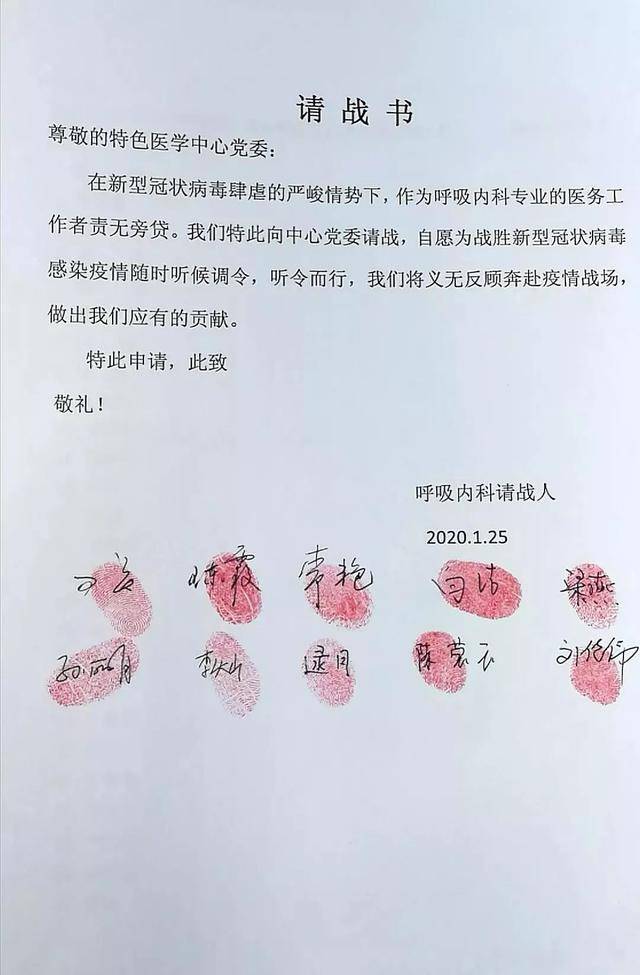 请战书
尊敬的特色医学中心党委：
在新型冠状病毒肆虐的严峻情势下，作为呼吸内科专业的医务工
作者责无旁贷。我们特此向中心党委请战，自愿为战胜新型冠状病毒
感染疫情随时听候调令，听令而行，我们将义无反顾奔赴疫情战场，
做出我们应有的贡献。
特此申请，此致
敬礼！
呼吸内科请战人
2020.1.25
陈霞 常艳 梁燕
孙丽明 逯月 陈慕云